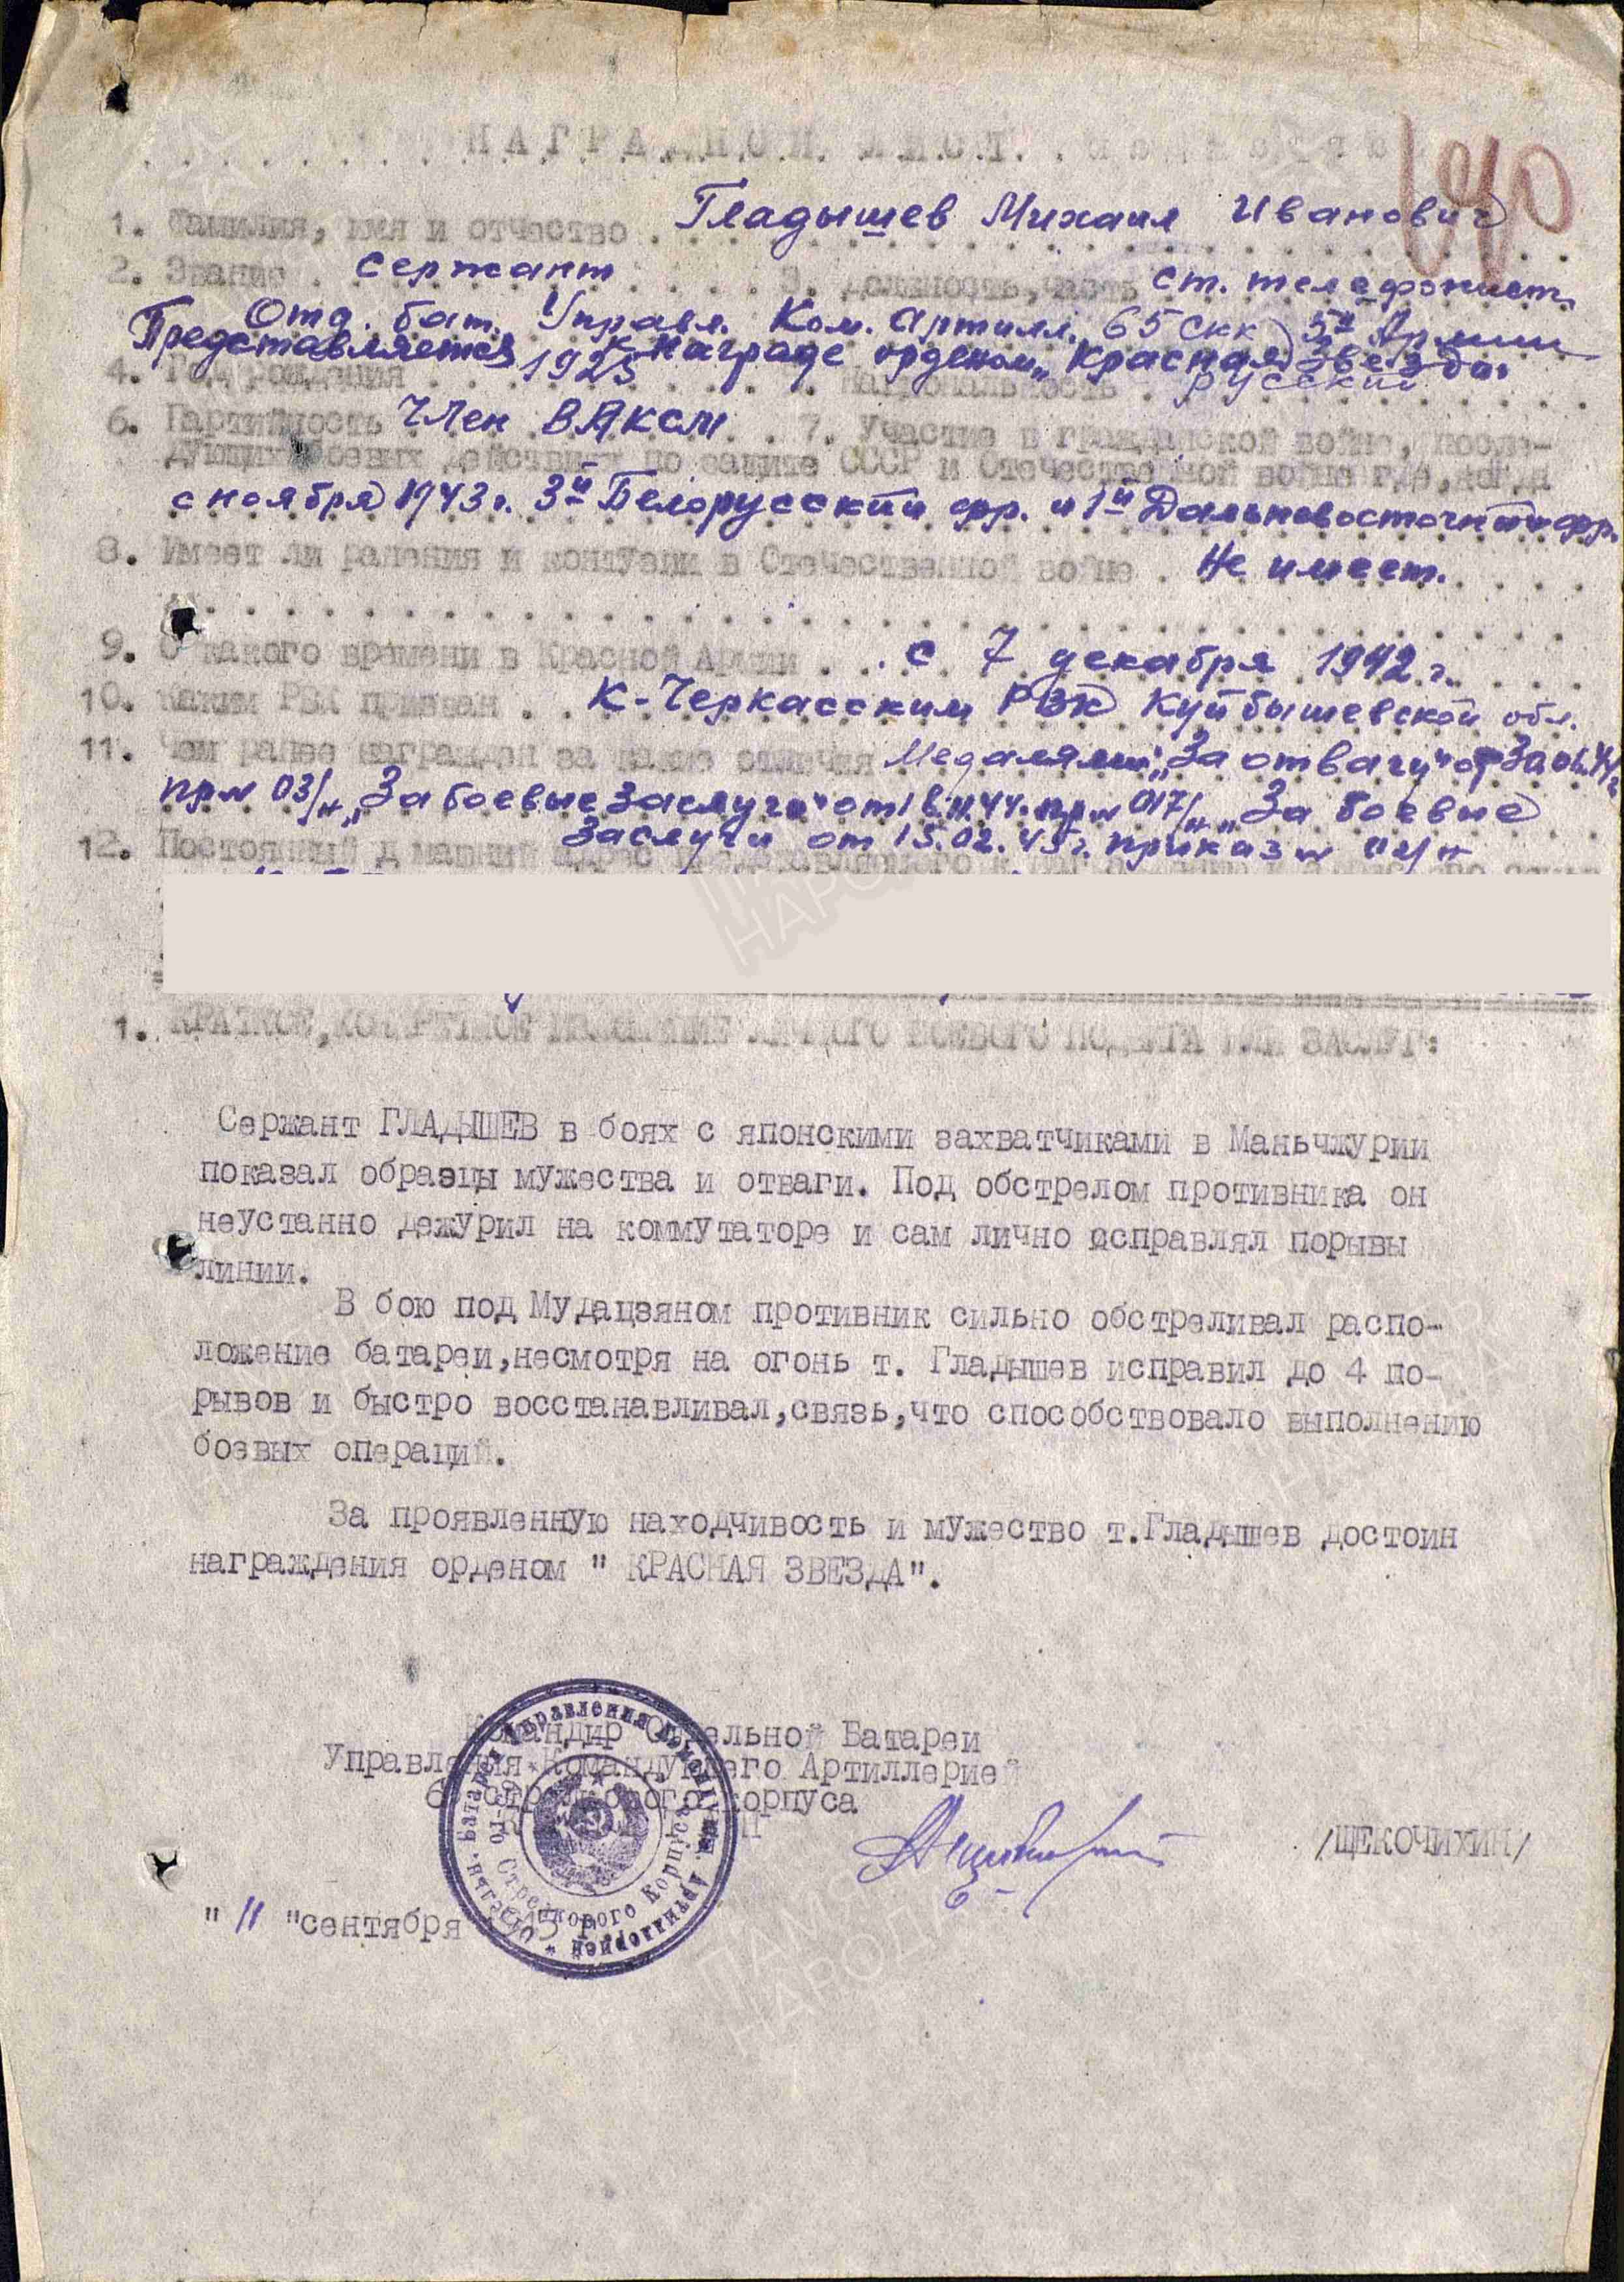 НАГРАДНОЙ ЛИСТ.
190
1. Фамилия, имя и отчество . Гладышев Михаил Иванович
2. Звание . сержант 3. должность, часть ст. телефонист.
Отд. бат. Управл. Ком. Артилл. 65 скк 5й Армии
Представляется к награде орденом „Красная Звезда"
4. Год рождения 1925 Национальность . русский
6. Партийность Член ВЛКСМ 7. Участие в гражданской войне, после-
дующих боевых действиях по защите СССР и Отечественной войне где, когда
с ноября 1943 г. 3й Белорусский фр. и 1й Дальневосточный фр.
8. Имеет ли ранения и контузии в Отечественной войне . Не имеет.
9. С какого времени в Красной Армии . . . с 7 декабря 1942 г.
10. Каким РВК призван . . К-Черкасским РВК Куйбышевской обл.
11. Чем ранее награжден за какие отличия Медалями „За отвагу" от
пр № 03/н „За боевые заслуги" от 44. пр № 017/н „За боевые
Заслуги от 15.02.45 г. приказ №
12. Постоянный домашний адрес
1. КРАТКОЕ, КОНКРЕТНОЕ ИЗЛОЖЕНИЕ ЛИЧНОГО БОЕВОГО ПОДВИГА ИЛИ ЗАСЛУГ:
Сержант ГЛАДЫШЕВ в боях с японскими захватчиками в Маньчжурии
показал образцы мужества и отваги. Под обстрелом противника он
неустанно дежурил на коммутаторе и сам лично исправлял порывы
линии.
В бою под Мудацзяном противник сильно обстреливал распо-
ложение батареи,несмотря на огонь т. Гладышев исправил до 4 по-
рывов и быстро восстанавливал,связь,что способствовало выполнению
боевых операций.
За проявленную находчивость и мужество т.Гладышев достоин
награждения орденом " КРАСНАЯ ЗВЕЗДА".
Командир Отдельной Батареи
Управления Командующего Артиллерией
65 стрелкового корпуса
/ЩЕКОЧИХИН/
" 11 "сентября